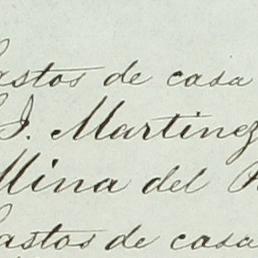 Gastos de casa
J. Martinez
Mina del
Gastos de casa